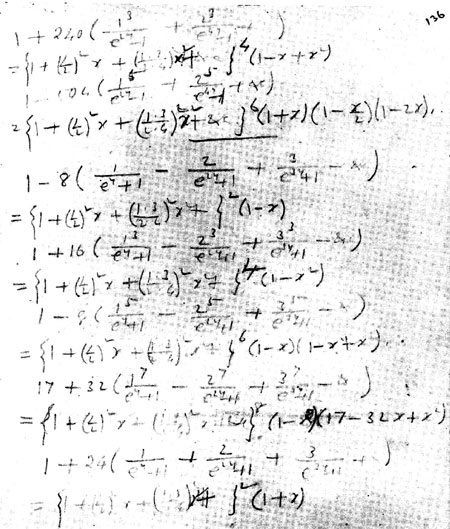 136
1 + 240 ( 1³/(e^y−1) + 2³/(e^2y−1) + )
= {1 + (½)² x + (1·3/2·4)² x² + &c }⁴ (1−x+x²)
1 − 504 ( 1⁵/(e^y−1) + 2⁵/(e^2y−1) + &c)
= {1 + (½)² x + (1·3/2·4)² x² + &c }⁶ (1+x) (1−x/2) (1−2x).
1 − 8 ( 1/(e^y+1) − 2/(e^2y+1) + 3/(e^3y+1) − & )
= {1 + (½)² x + (1·3/2·4)² x² + }² (1−x)
1 + 16 ( 1³/(e^y+1) − 2³/(e^2y+1) + 3³/(e^3y+1) − & )
= {1 + (½)² x + (1·3/2·4)² x² + }⁴ (1−x²)
1 − 8 ( 1⁵/(e^y+1) − 2⁵/(e^2y+1) + 3⁵/(e^3y+1) − )
= {1 + (½)² x + (1·3/2·4)² x² + }⁶ (1−x) (1−x+x²).
17 + 32 ( 1⁷/(e^y+1) − 2⁷/(e^2y+1) + 3⁷/(e^3y+1) − & )
= {1 + (½)² x + (1·3/2·4)² }⁸ (17−32x+x²)
1 + 24 ( 1/(e^y+1) + 2/(e^2y+1) + 3/(e^3y+1) + )
= {1 + (½)² x + (1·3/2·4)² }² (1+x)